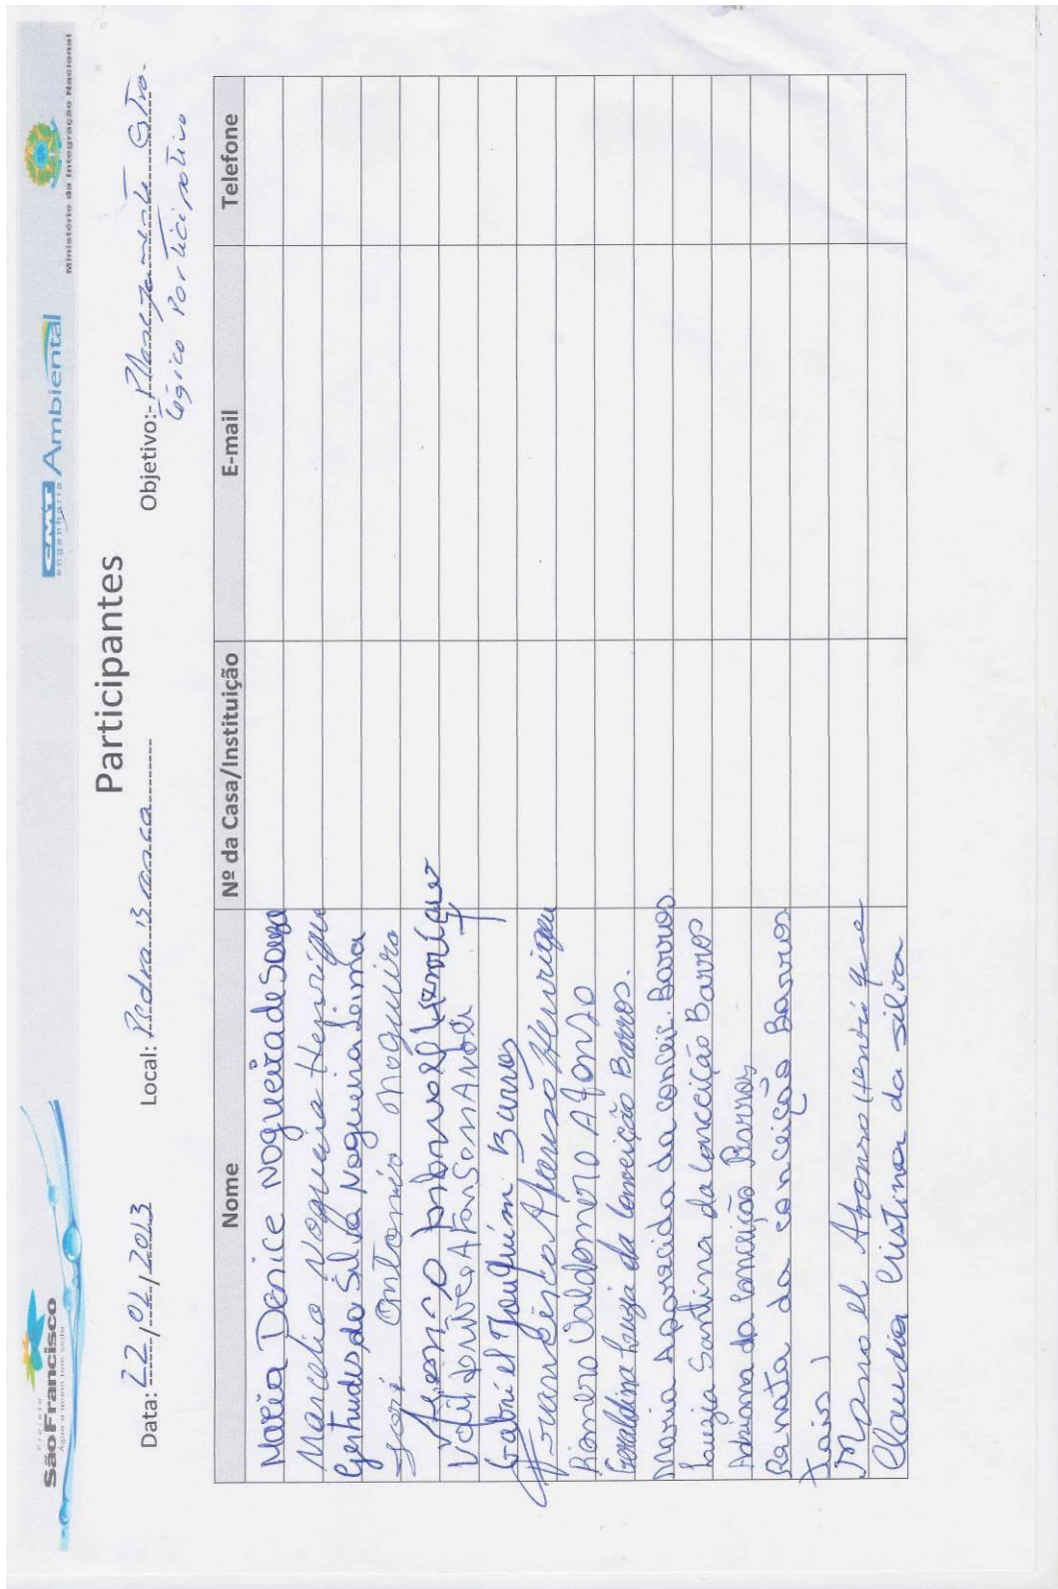 Projeto
São Francisco
Água a quem tem sede
CMT Ambiental
engenharia
Ministério da Integração Nacional
Participantes
Data: 22/01/2013 Local: Pedra Branca Objetivo: Planejamento Estra-
tégico Participativo
Nome Nº da Casa/Instituição E-mail Telefone
Maria Denice Nogueira de Souza
Marcelia Nogueira Henrique
Gertrudes da Silva Nogueira Leima
José Antonio Nogueira
Gabriel Joaquim Barros
Francisco Afonso Henrique
Romero Valdemiro Afonso
Geraldina Luzia da Conceição Barros.
Maria Aparecida da Concei. Barros.
Luzia Santina da Conceição Barros
Adriana da Conceição Barros
Renata da conceição Barros
Manoel Afonso Henrique
Claudia Cristina da Silva